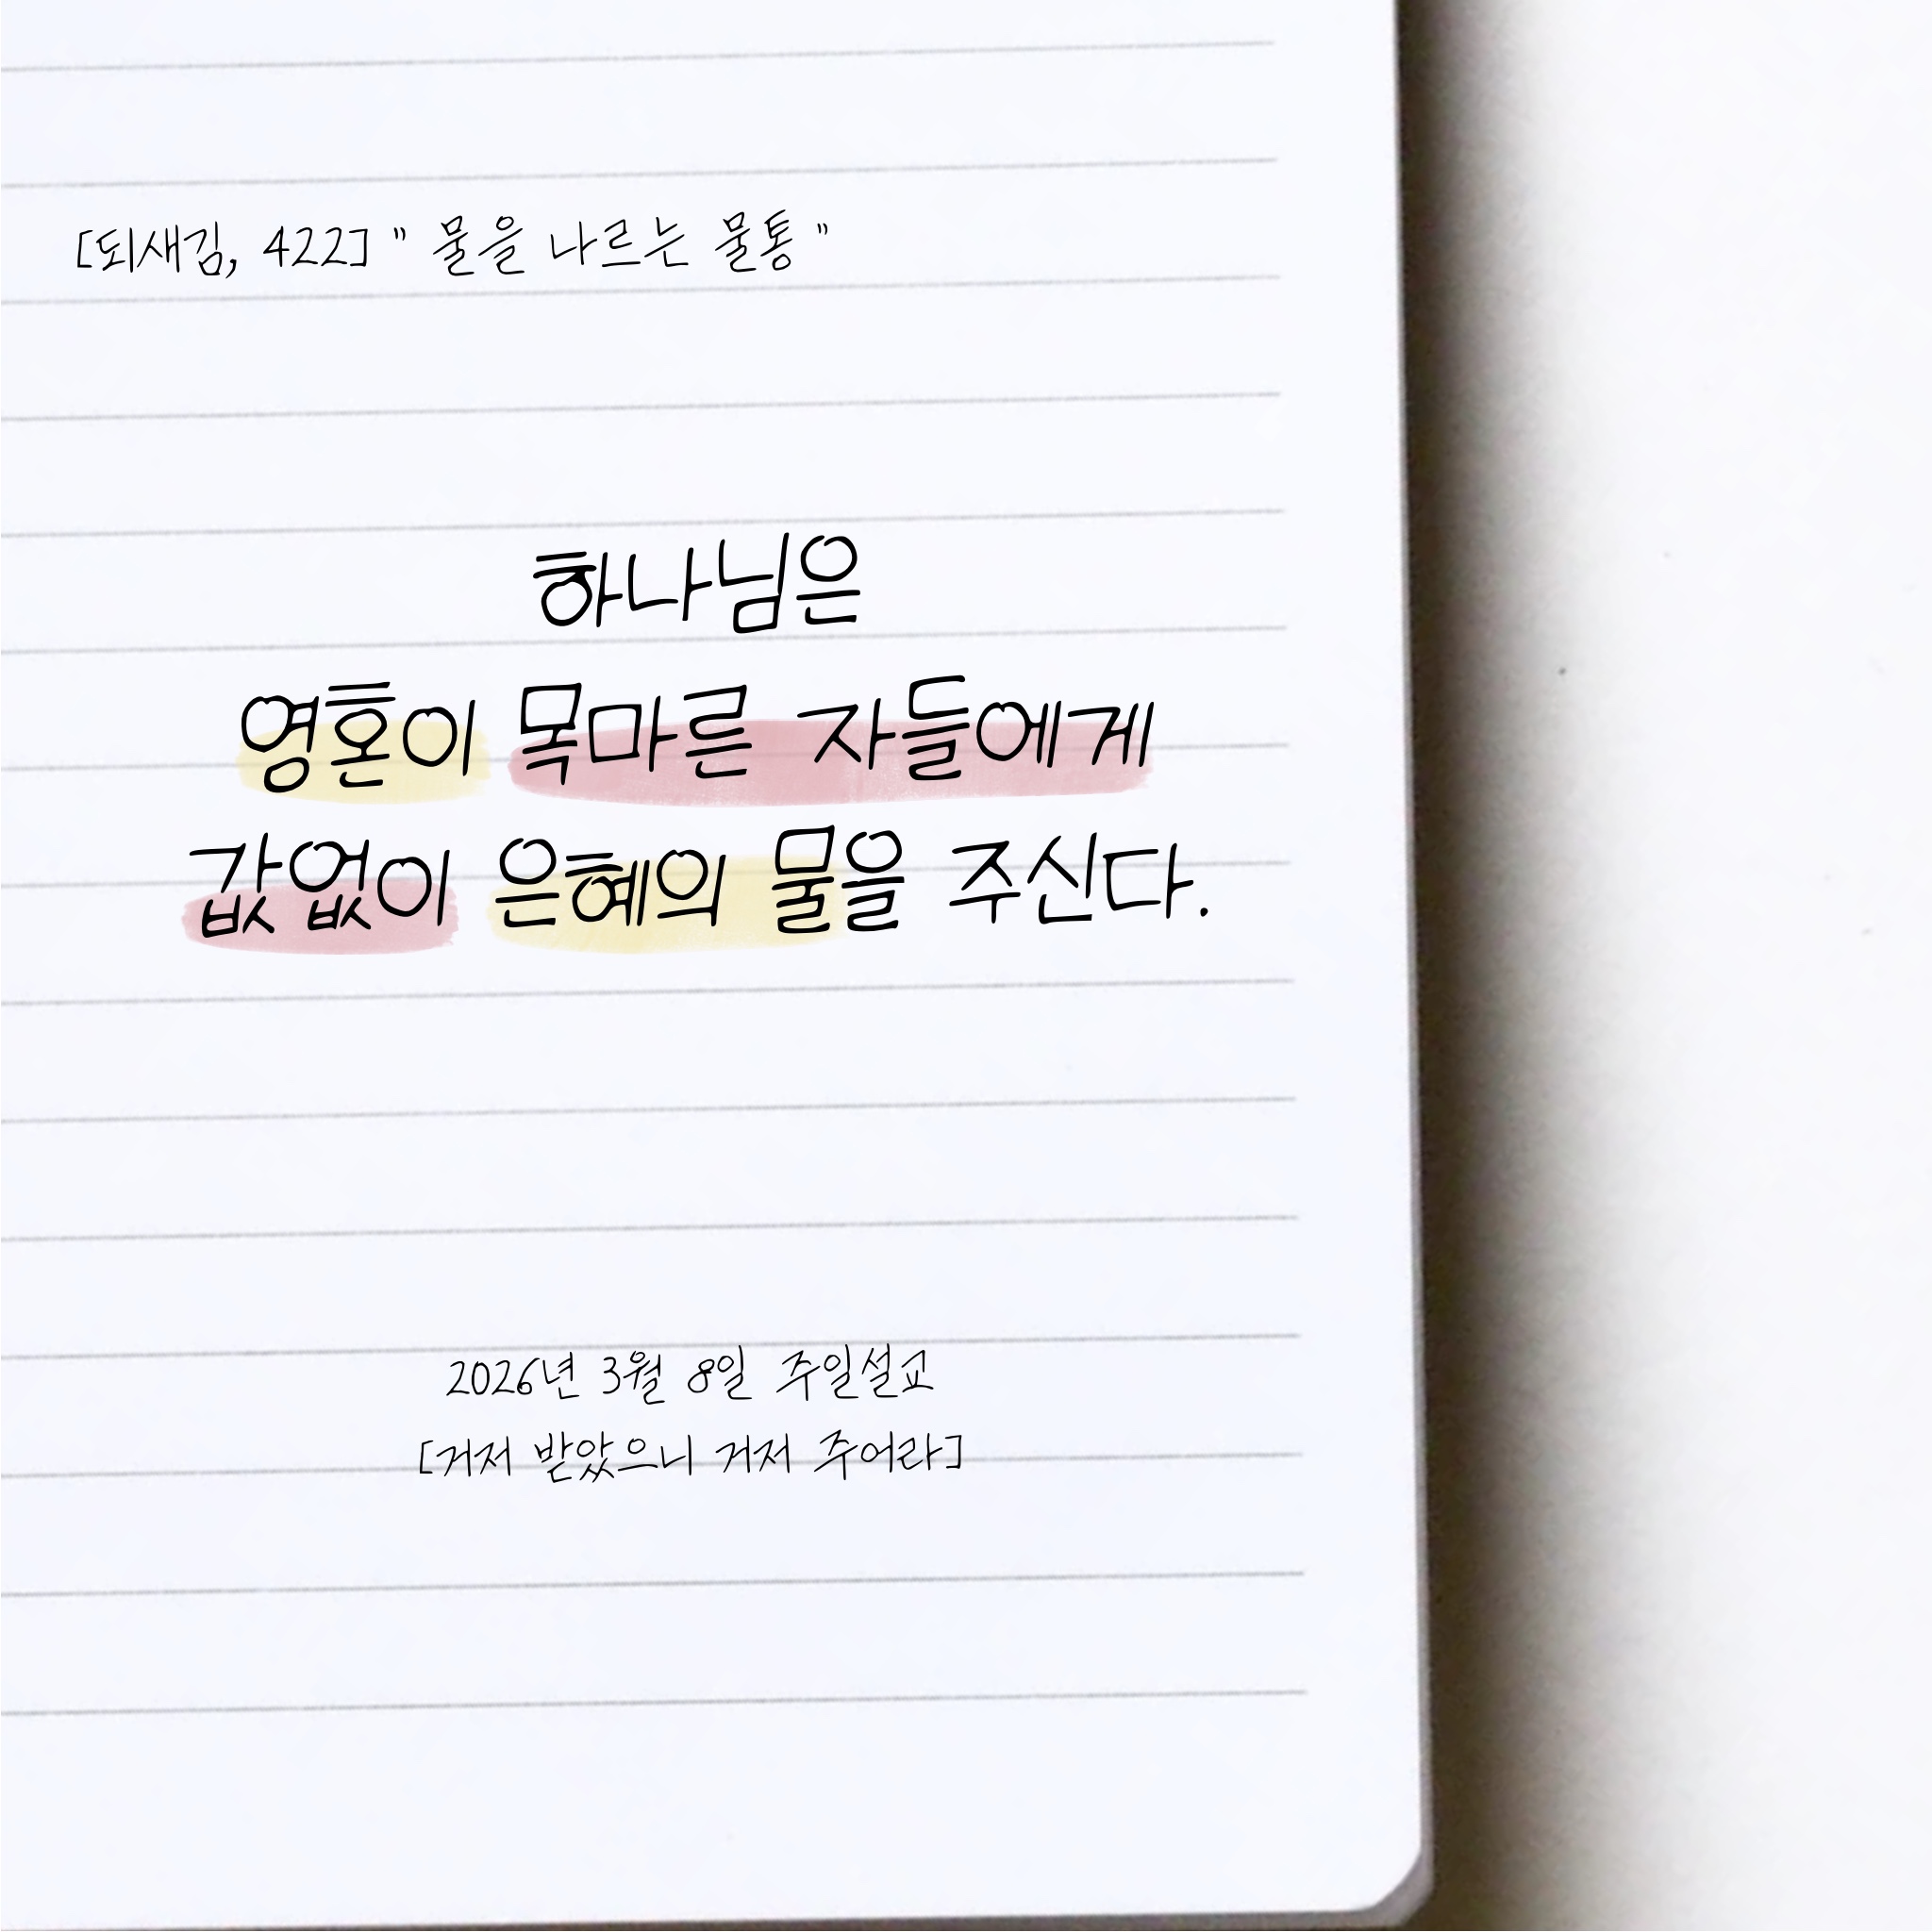 [되새김, 422] " 물을 나르는 물통 "
하나님은
영혼이 목마른 자들에게
값없이 은혜의 물을 주신다.
2026년 3월 8일 주일설교
[거저 받았으니 거저 주어라]